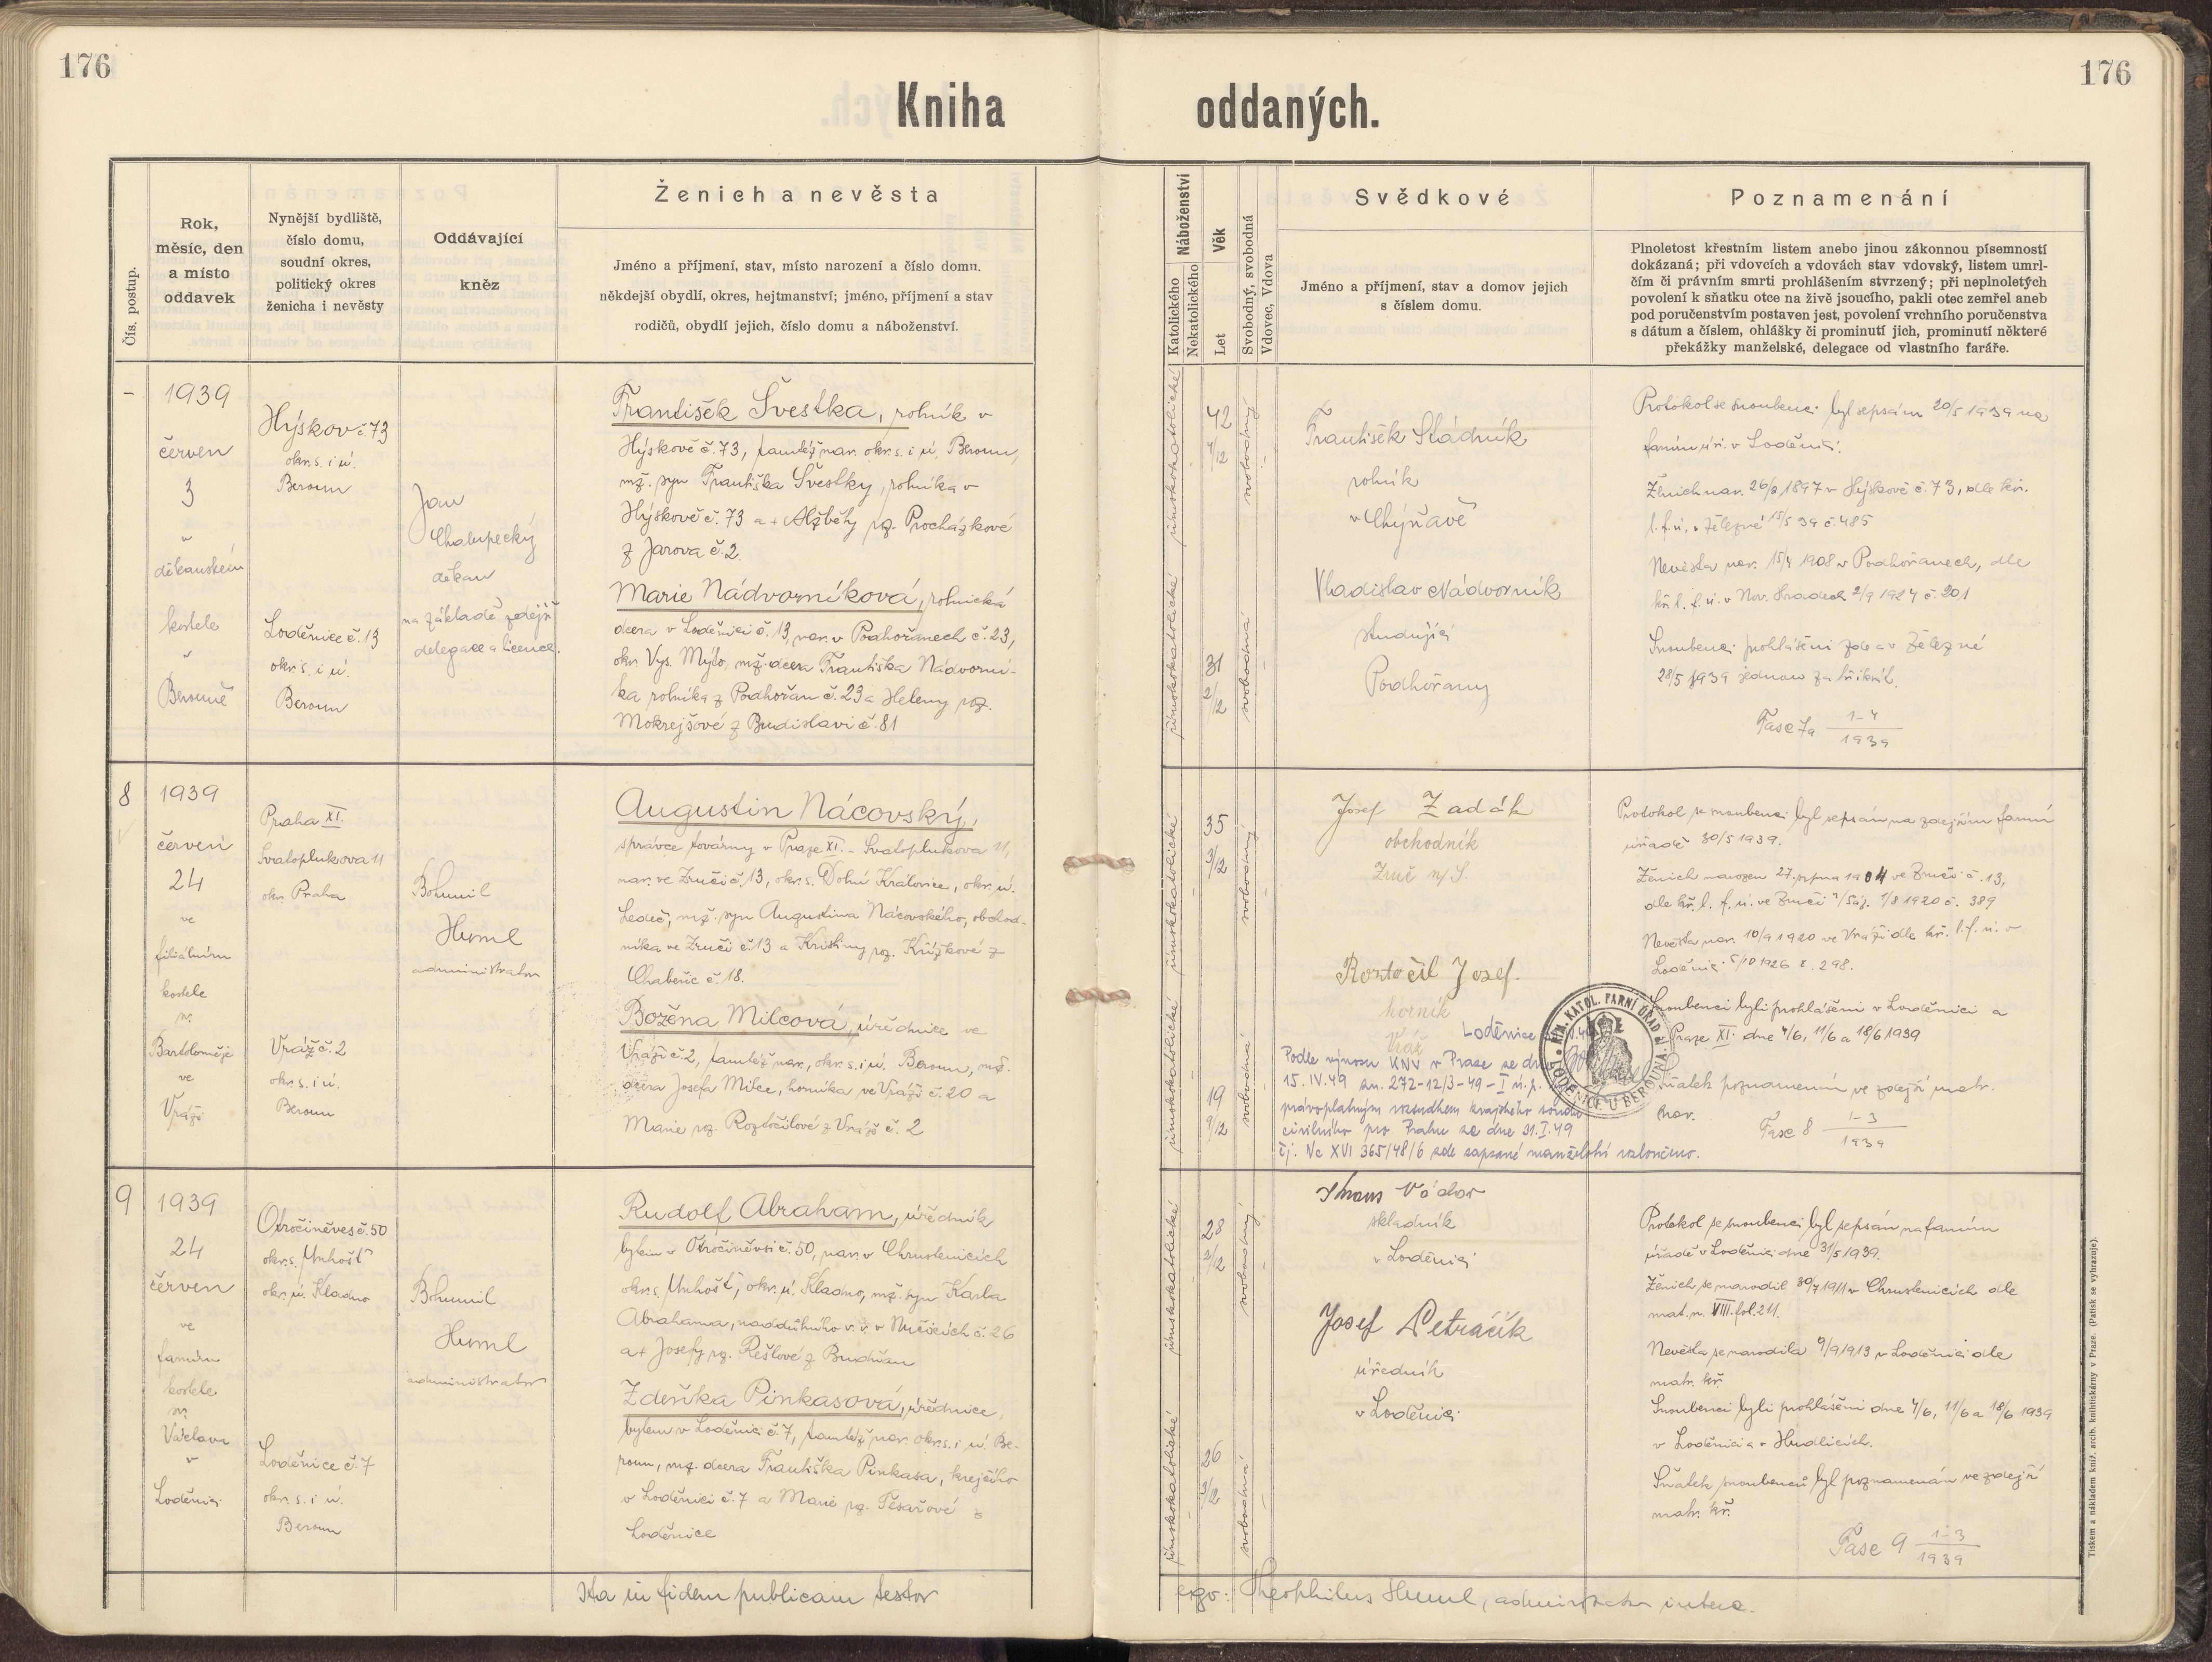 176
176
Kniha oddaných.
Čís. postup.
Rok,
měsíc, den
a místo
oddavek
Nynější bydliště,
číslo domu,
soudní okres,
politický okres
ženicha i nevěsty
Oddávající
kněz
Ženich a nevěsta
Jméno a příjmení, stav, místo narození a číslo domu.
někdejší obydlí, okres, hejtmanství; jméno, příjmení a stav
rodičů, obydlí jejich, číslo domu a náboženství.
Náboženství
Katolického
Nekatolického
Věk
Let
Svobodný, svobodná
Vdovec, Vdova
Svědkové
Jméno a příjmení, stav a domov jejich
s číslem domu.
Poznamenání
Plnoletost křestním listem anebo jinou zákonnou písemností
dokázaná; při vdovcích a vdovách stav vdovský, listem umrl-
čím či právním smrti prohlášením stvrzený; při neplnoletých
povolení k sňatku otce na živě jsoucího, pakli otec zemřel aneb
pod poručenstvím postaven jest, povolení vrchního poručenstva
s dátum a číslem, ohlášky či prominutí jich, prominutí některé
překážky manželské, delegace od vlastního faráře.
–
1939
červen
3
v
děkanském
kostele
v
Berouně
Hýskov č. 73
okr. s. i ú.
Beroun
Loděnice č. 13
okr. s. i ú.
Beroun
Jan
Chalupecký
děkan
na základě zdejší
delegace a licence.
František Švestka, rolník v
Hýskově č. 73, tamtéž nar. okr. s. i ú. Beroun,
mž. syn Františka Švestky, rolníka v
Hýskově č. 73 a + Alžběty roz. Procházkové
z Jarova č. 2.
Marie Nádvorníková, rolnická
dcera v Loděnici č. 13, nar. v Podhořanech č. 23,
okr. Vys. Mýto, mž. dcera Františka Nádvorní-
ka rolníka z Podhořan č. 23 a Heleny roz.
Mokrejšové z Budislavi č. 81
římskokatolické
římskokatolické
42
31
2/12
svobodný
svobodná
František Sládník
rolník
v Chýňavě
Vladislav Nádvorník
studující
Podhořany
Protokol se snoubenci byl sepsán 20/5 1939 na
farním úř. v Loděnici.
Ženich nar. 26/2 1897 v Hýskově č. 73, dle kř.
l. f. ú. v Železné 15/5 39 č. 485
Nevěsta nar. 15/4 1908 v Podhořanech, dle
kř. l. f. ú. v Nov. Hradech 2/9 1924 č. 201
Snoubenci prohlášeni zde a v Železné
28/5 1939 jednou za třikrát.
Fasc 7a 1-4
1939
8
1939
červen
24
ve
filiálním
kostele
sv.
Bartoloměje
ve
Vráži
Praha XI.
Svatoplukova 11
okr. Praha
Vráž č. 2
okr. s. i ú.
Beroun
Bohumil
Huml
administrator
Augustin Nácovský,
správce továrny v Praze XI. – Svatoplukova 11,
nar. ve Zruči č. 13, okr. s. Dolní Kralovice, okr. ú.
Ledeč, mž. syn Augustina Nácovského, obchod-
níka ve Zruči č. 13 a Kristiny roz. Křížkové z
Chabeřic č. 18.
Božena Milcová, úřednice ve
Vráži č. 2, tamtéž nar., okr. s. i ú. Beroun, mž.
dcera Josefa Milce, horníka ve Vráži č. 20 a
Marie roz. Roztočilové z Vráže č. 2
římskokatolické
římskokatolické
35
3/12
19
9/12
svobodný
svobodná
Josef Zadák
obchodník
Zruč n/S.
Roztočil Josef.
horník
Vráž
Loděnice
Podle výnosu KNV v Praze ze dne
15. IV. 49 zn. 272-12/3-49-I n. p.
právoplatným rozsudkem krajského soudu
civilního pro Prahu ze dne 31. I. 49
čj. Nc XVI 365/48/6 zde zapsané manželství rozloučeno.
ŘÍM. KATOL. FARNÍ ÚŘAD
LODĚNICE U BEROUNA
Protokol se snoubenci byl sepsán na zdejším farním
úřadě 30/5 1939.
Ženich narozen 27. srpna 1904 ve Zruči č. 13,
dle kř. l. f. ú. ve Zruči n/Sáz. 1/8 1920 č. 389
Nevěsta nar. 10/9 1920 ve Vráži dle kř. l. f. ú. v
Loděnici 5/10 1926 č. 298.
Snoubenci byli prohlášeni v Loděnici a
Praze XI. dne 4/6, 11/6 a 18/6 1939
Sňatek poznamenán ve zdejší matr.
nar.
Fasc 8 1-3
1939
9
1939
24
červen
ve
farním
kostele
sv.
Václava
v
Loděnici
Otročiněves č. 50
okr. s. Unhošť
okr. ú. Kladno
Loděnice č. 7
okr. s. i ú.
Beroun
Bohumil
Huml
administrator
Rudolf Abraham, úředník
bytem v Otročiněvsi č. 50, nar. v Chrustenicích
okr. s. Unhošť, okr. ú. Kladno, mž. syn Karla
Abrahama, naddůlního v. v. v Nučicích č. 26
a + Josefy roz. Rešlové z Budňan
Zdeňka Pinkasová, úřednice,
bytem v Loděnici č. 7, tamtéž nar. okr. s. i ú. Be-
roun, mž. dcera Františka Pinkasa, krejčího
v Loděnici č. 7 a Marie roz. Tesařové z
Loděnice
římskokatolické
římskokatolické
28
26
svobodný
svobodná
Vódor
skladník
v Loděnici
Josef Petráčík
úředník
v Loděnici
Protokol se snoubenci byl sepsán na farním
úřadě v Loděnici dne 31/5 1939.
Ženich se narodil 30/7 1911 v Chrustenicích dle
mat. n. VIII. fol. 211.
Nevěsta se narodila 9/9 1913 v Loděnici dle
matr. kř.
Snoubenci byli prohlášeni dne 4/6, 11/6 a 18/6 1939
v Loděnici a v Hudlicích.
Sňatek snoubenců byl poznamenán ve zdejší
matr. kř.
Fasc 9 1-3
1939
Ita in fidem publicam testor
ego: Theophilus Huml, administrator interc.
Tiskem a nákladem kníž. arcib. knihtiskárny v Praze. (Patisk se vyhrazuje).